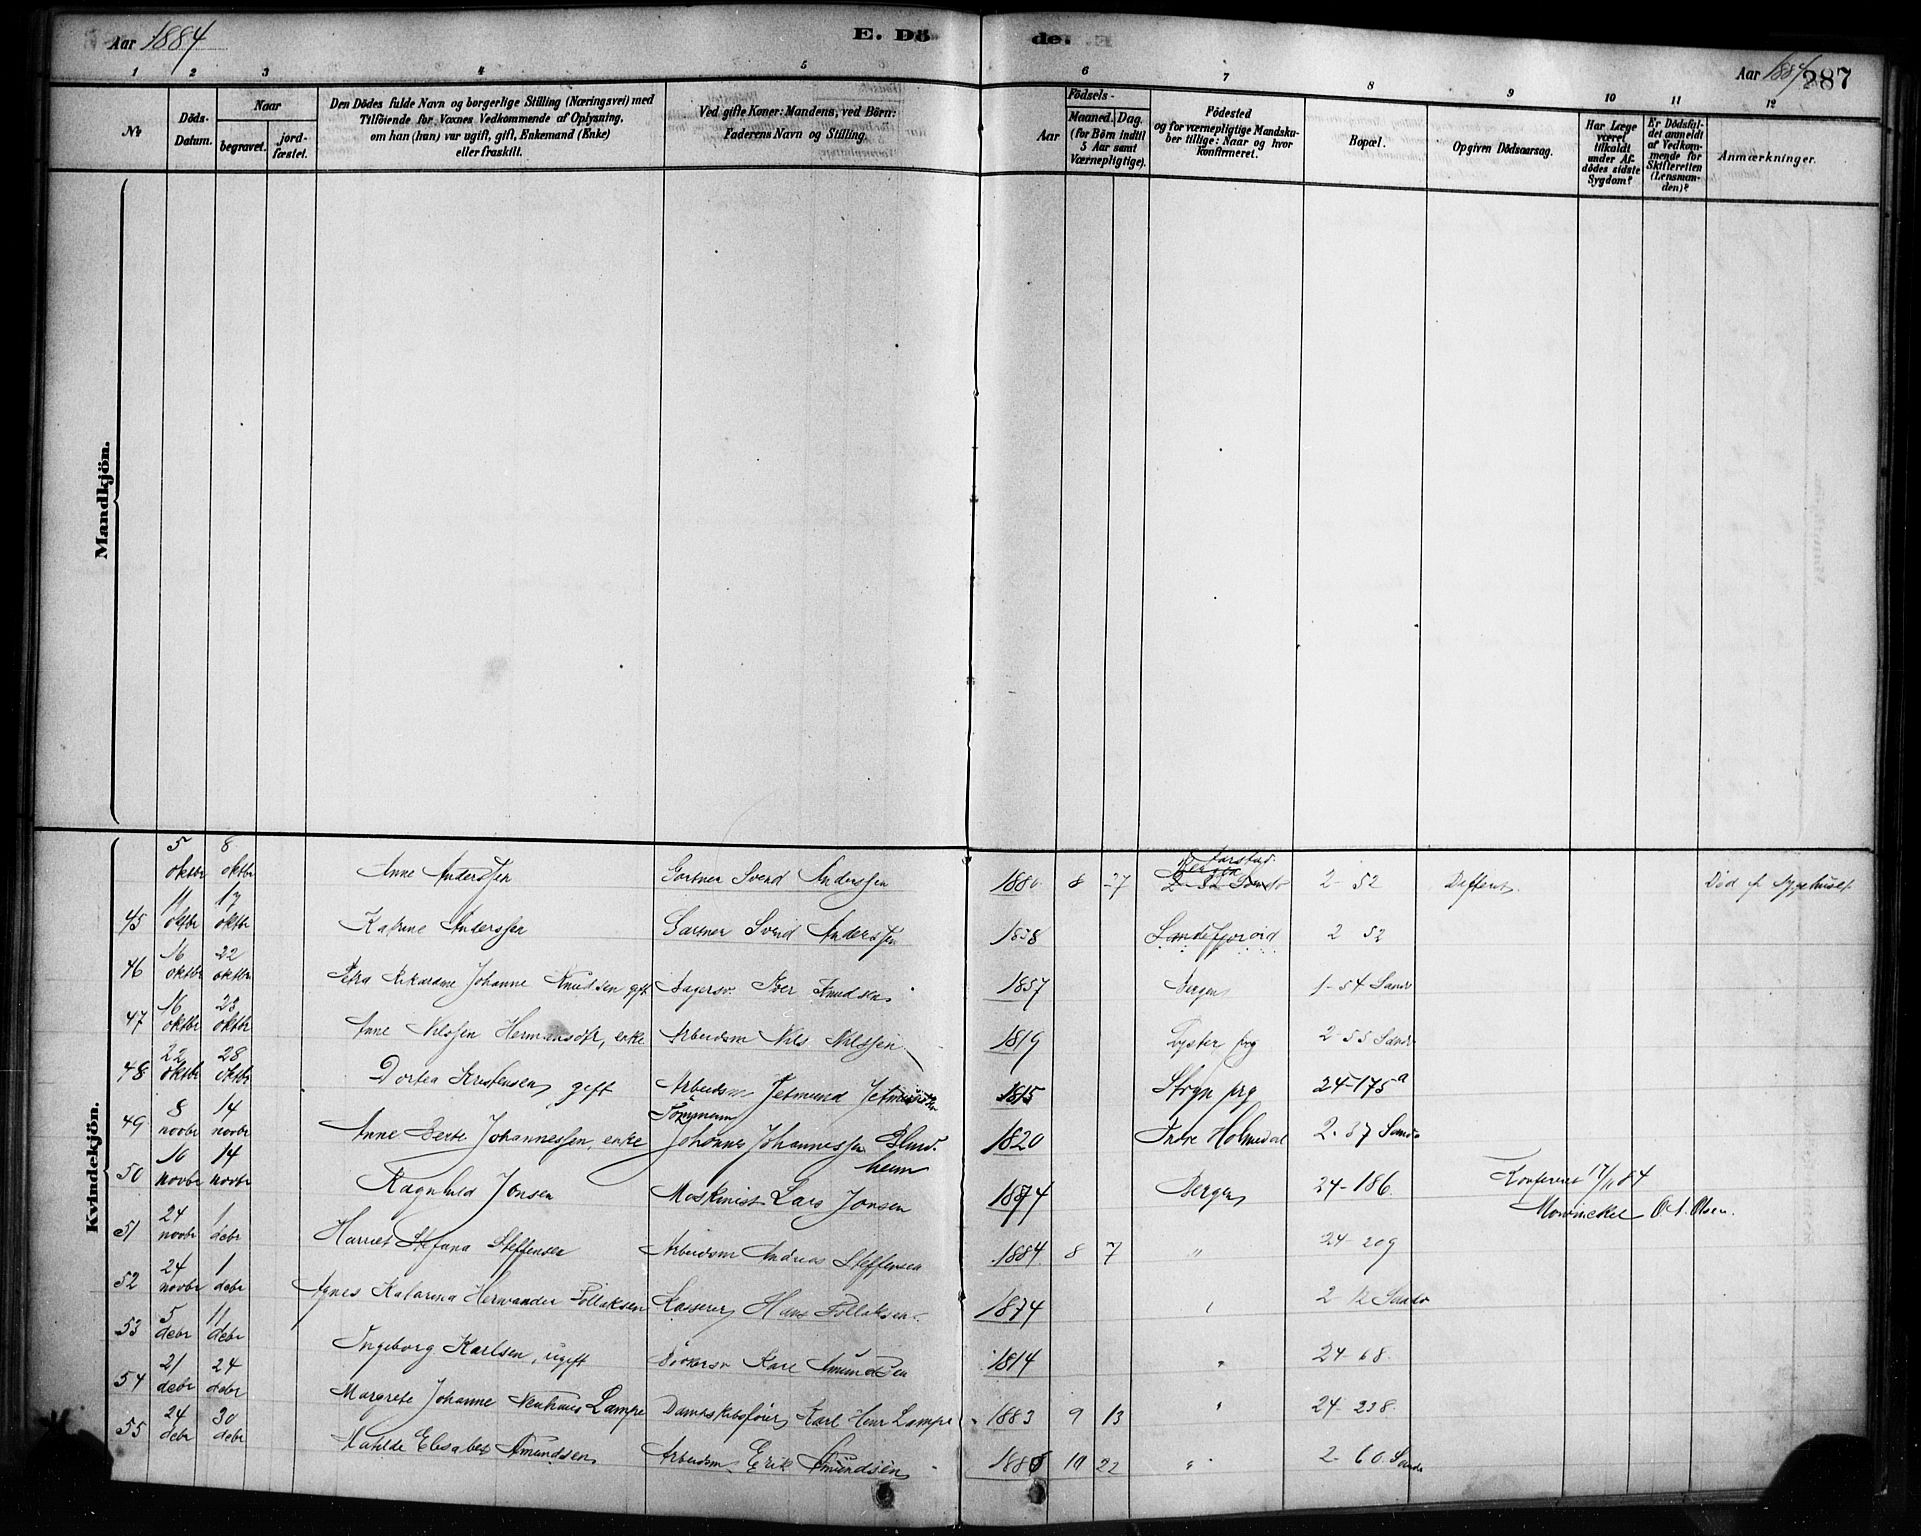 Aar 1884
E. Dö
de.
Aar 1884
287
1 2 3 4 5 6 7 8 9 10 11 12
No
Döds-Datum.
Naar
begravet.
jord-fæstet.
Den Dödes fulde Navn og borgerlige Stilling (Næringsvei) med
Tilföiende for Voxnes Vedkommende af Oplysning,
om han (hun) var ugift, gift, Enkemand (Enke)
eller fraskilt.
Ved gifte Koner: Mandens, ved Börn:
Faderens Navn og Stilling.
Födsels-
Aar
Maaned. Dag.
(for Börn indtil
5 Aar samt
Værnepligtige).
Födested
og for værnepligtige Mandsku-
ber tillige: Naar og hvor
konfirmeret.
Bopæl.
Opgiven Dödsaarsag.
Har Læge
været
tilkaldt
under Af-
dödes sidste
Sygdom?
Er Dödsfal-
det anmeldt
af Vedkom-
mende for
Skifteretten
(Lensman-
den)?
Anmærkninger.
Mandkjön.
Kvindekjön.
5 oktbr 8 oktbr Anne Anderssen Gartner Svend Anderssen 1880 8 27 Bergen 2-52 Død
45 11 oktbr 17 oktbr Katrine Anderssen Gartner Svend Anderssen 1858 Sandefjord 2 52
46 16 oktbr 22 oktbr Petra Rikardine Johanne Knudsen gift Iver Knudsen 1857 Bergen 1-54 Sandv
47 16 oktbr 23 oktbr Anne Nilssen Hermansdtr, enke Arbeidsm Nils Nilssen 1819 Lyster prg 2-55 Sandv
48 22 oktbr 28 oktbr Dortea Kristensen, gift Arbeidsm Jetmund 1815 Stryn prg 24-175a
49 8 novbr 14 novbr Anne Berte Johannessen, enke Tömmerm Johannes Johannessen Blind-
heim 1820 Indre Holmedal 2-37 Sandv
50 10 novbr 14 novbr Ragnhild Jonsen Maskinist Lars Jonsen 1874 Bergen 24-186 Konfereret 17/11 84
Mowinckel O. A. Olsen.
51 24 novbr 1 debr Harriet Stefana Steffensen Arbeidsm Andreas Steffensen 1884 8 7 " 24-209
52 24 novbr 1 debr Agnes Katarina Herwander Follaksen Kasserer Hans Follaksen 1874 " 2-12 Sandv
53 5 debr 11 debr Ingeborg Karlsen, ugift Bödkersv Karl Amundsen 1814 " 24-68
54 21 debr 24 debr Margrete Johanne Neuhaus Lampe Karl Henr Lampe 1883 9 13 " 24-238
55 24 debr 30 debr Matilde Elisabet Amundsen Arbeidsm Erik Amundsen 1880 10 22 " 2-60 Sandv